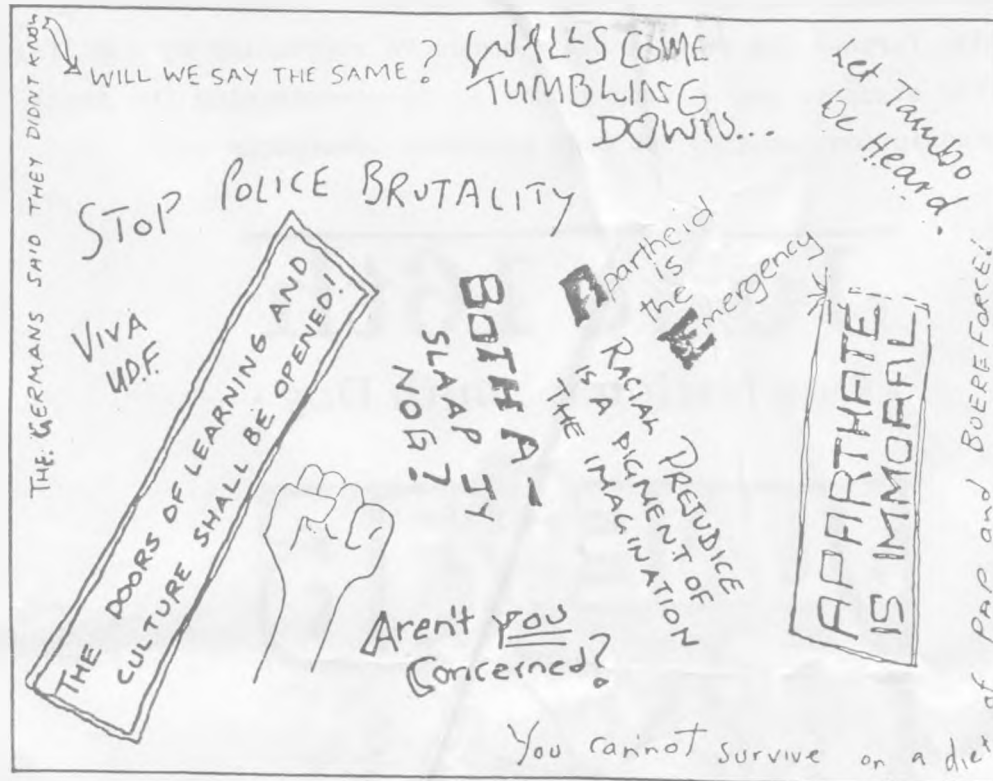 THE GERMANS SAID THEY DIDNT KNOW
WILL WE SAY THE SAME?
WALLS COME
TUMBLING
DOWN...
Let Tambo
be Heard.
STOP POLICE BRUTALITY
VIVA
UDF.
THE DOORS OF LEARNING AND
CULTURE SHALL BE OPENED!
BOTHA-
SLAAP JY
NOG?
Apartheid
is
the
Emergency
RACIAL PREJUDICE
IS A PIGNENT OF
THE IMAGINATION
APARTHATE
IS IMMORAL
Aren't you
Concerned?
You cannot survive on a diet of PAP and BOEREFORCE!